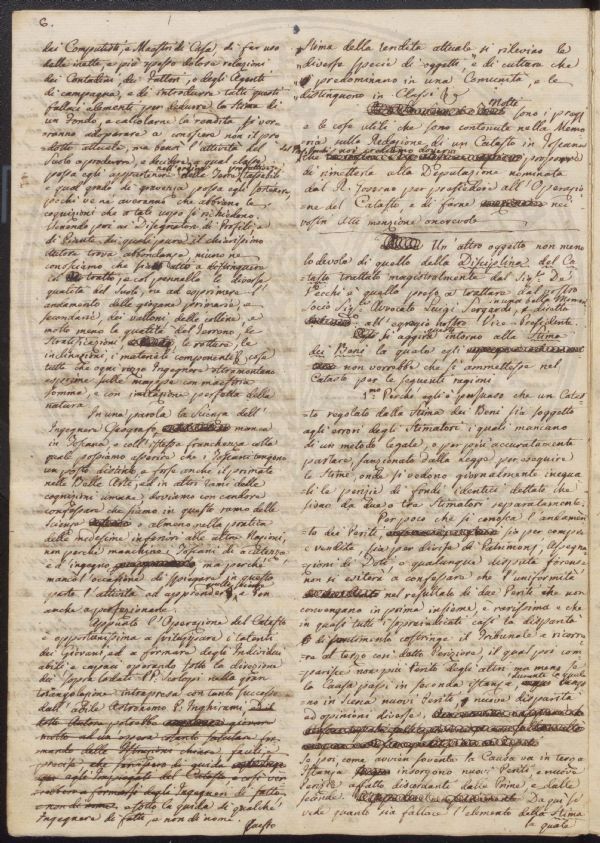 6.
dei Computisti, e Maestri di Casa, di far uso
delle inette, e più spesso dolose relazioni
dei Contadini dei Fattori, o degli Agenti
di campagna, e di introdurre tutti questi
fallaci elementi per dedurre la Stima di
un Fondo, e calcolarne la rendita. Se vor-
ranno adoperare a conoscere non il pro-
dotto attuale, ma bensì l'attività del
Suolo a produrre, e decidere a qual classe
possa egli appartenere delle Terre
e qual grado di gravezza possa egli sostenere,
pochi ve ne averanno che abbiano le
cognizioni che a tale uopo si richiedono.
Venendo poi ai Disegnatori di Profili, e
di Piante, di quali pure il chiarissimo
Autore trova abbondanza, niuno ne
conosciamo che sia atto a distinguere
co' tratti, e col pennello le diverse
qualità del Suolo, ne ad esprimere l'
andamento delle giogane primarie, e
secondarie dei valloni, delle colline, e
molto meno la qualità del Terreno, le
Stratificazioni le rotture, le
inclinazioni, i materiali componenti, cose
tutte che ogni rozzo Ingegnere oltramontano
esprime sulle mappe con maestria
somma, e con imitazione perfetta della
natura.
In una parola la Scienza dell'
Ingegnere Geografo manca
in Toscana, e coll'istessa franchezza colla
quale possiamo asserire che i Toscani tengono
un posto distinto, e forse anche il primato
nelle Belle Arti, ed in altri rami delle
cognizioni umane, dobbiamo con candore
confessare che siamo in questo ramo delle
Scienze o almeno nella pratica
delle medesime inferiori alle altre Nazioni,
non perchè manchino i Toscani di acutezza
e d'ingegno, ma perchè
mancò l'occasione di spiegare in questa
parte l'attività ad apprendere quelle scienze, e non
anche a perfezionarle.
Appunto l'Operazione del Catasto
è opportunissima a sviluppare i talenti
dei giovani, ed a formare degli Individui
abili e capaci operando sotto la direzione
dei sopra lodati P.P. Scolopi nella gran
triangolazione intrapresa con tanto successo
dall'abile Astronomo P. Inghirami,
molto ad un' opera
delle Istruzioni chiare facili e
precise, che servissero di guida
agli Impiegati del Catasto, e così ver-
rebbero a formarsi degli Ingegneri di fatto,
e non di nome. e sotto la guida di qualche
Ingegnere di fatti, e non di nome.
Questo
Stima della rendita attuale si rilevino le
diverse specie di oggetti, e di cultura che
predominano in una Comunità, e le
distinguono in Classi.
Molti sono i pregj
e le cose utili che sono contenute nella Memo-
ria sulla Redazione di un Catasto in Toscana
proporre
di rimetterla alla Deputazione nominata
dal R. Governo per presiedere all'Operazio-
ne del Catasto, e di farne nei
nostri Atti menzione onorevole.
Un altro oggetto non meno
lodevole di quello della Disciplina del Ca-
tasto trattato magistralmente dal Sig. De'
Vecchi è quello preso a trattare dal nostro
Socio Sig. Avvocato Luigi Sergardi in una bella Memoria
all'egregio nostro Vice-Presidente.
Questo si aggira intorno alla Stima
dei Beni la quale egli
non vorrebbe che si ammettesse nel
Catasto per le seguenti ragioni
1.mo Perchè egli è persuaso che un Catas-
to regolato dalla Stima dei Beni sia soggetto
agli errori degli Stimatori i quali mancano
di un metodo legale, e per più accuratamente
parlare, sanzionato dalla legge per eseguire
le Stime, onde si vedono giornalmente inegua-
li le perizie di fondi identici dettate che
siano da due, o tre Stimatori separatamente.
Per poco che si conosca l'andamen-
to dei Periti, sia per compre,
e vendite, sia per divise di Patrimonj, assegna-
zioni di Dote, o qualunque disputa forense
non si esiterà a confessare che l'uniformità
nel resultato di due Periti che non
convengano in prima insieme, è rarissima e che
in quasi tutti i casi la disparità
di sentimento costringe il Tribunale a ricorre-
re al terzo così detto Perizione, il qual poi com-
parisce non più Perito degli altri ma meno se
la Causa passi in seconda istanza, durante la quale
no in Scena nuovi Periti, nuove disparità
ed opinioni diverse,
Se poi, come avvien sovente la Causa va in terza
Istanza insorgono nuovi Periti, e nuove
Perizie affatto discordanti dalle Prime, e dalle
seconde. Da qui si
vede quanto sia fallace l'elemento della Stima
la quale